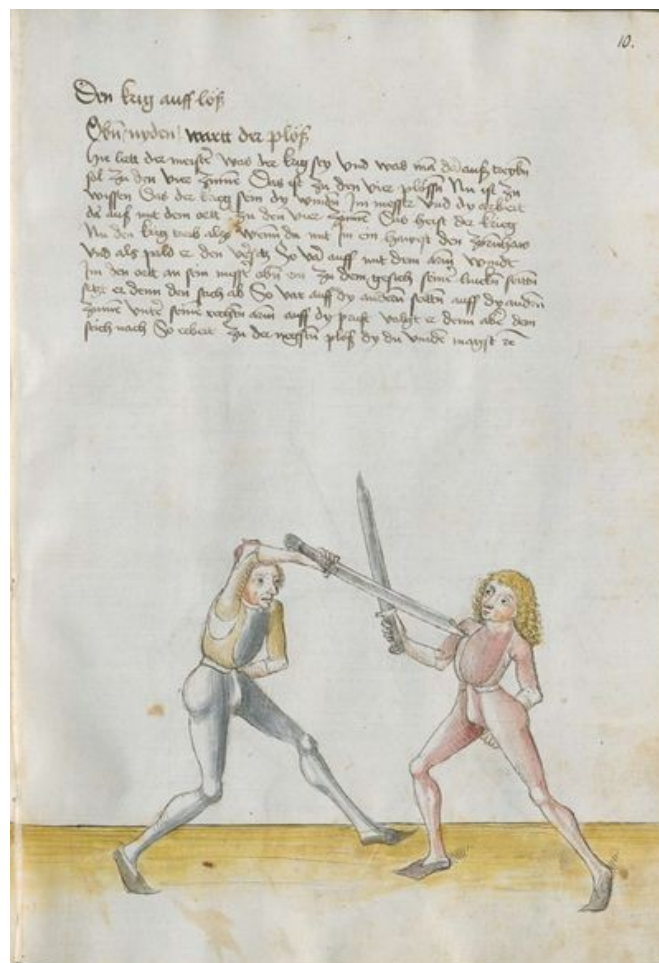 10.
Den krig auff löß
Obn nyden wartt der plöß
Hie lertt der meister was der krig sey Vnd was man dar auß treybn
sol Zu den vier Zinnē Das ist Zu den vier plössn Nu ist Zu
wissen Das der krieg sein dy windn Im messer Vnd dy arbeit
dar auß mit dem ortt Zu den vier Zinnē Das heist der krieg
Nu den krig treib also Wenn du mit Im ein hawest den Zornhaw
Vnd als pald er den versetzt So var auff mit dem arm Winde
Im den ortt an sein messer obn ein Zu dem gesich seiner lincken seittn
setzt er denn den stich ab So var auff dy andern seittn auff dy andern
Zinnē vnter seinē rechtn arm auff dy prust volgt er denn aber dem
stich nach So erbeit Zu der negstn plöß dy du vinden magst etc